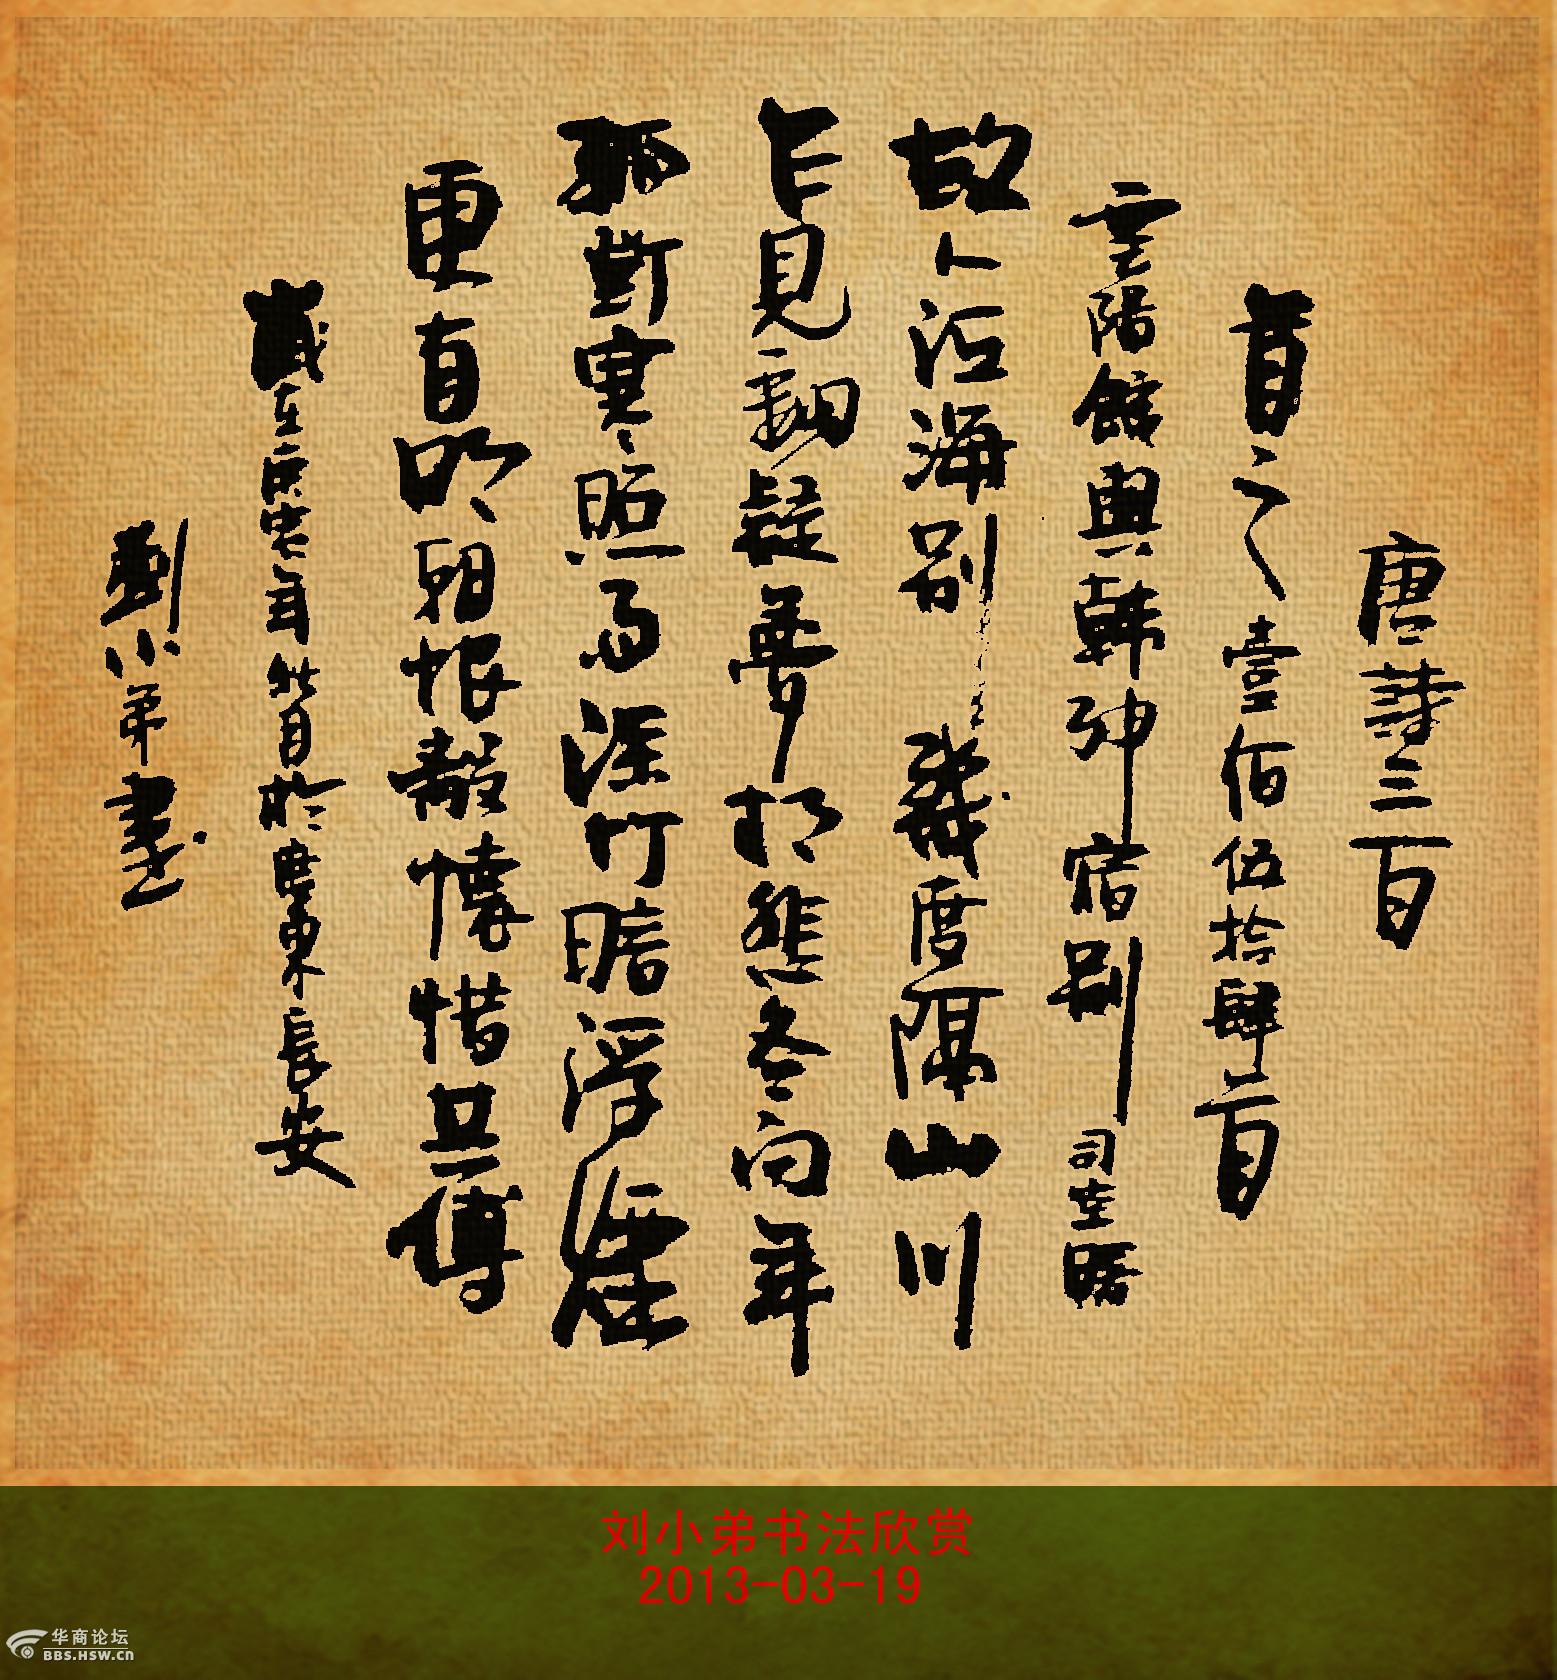 唐詩三百
首之壹佰伍拾肆首
雲陽館與韓紳宿別 司空曙
故人江海別幾度隔山川
乍見翻疑夢相悲各向年
孤燈寒照雨深竹暗浮煙
更有明朝恨離懷惜共傳
歲在年月於廣東長安
劉小弟書
刘小弟书法欣赏
2013-03-19
华商论坛
BBS.HSW.CN